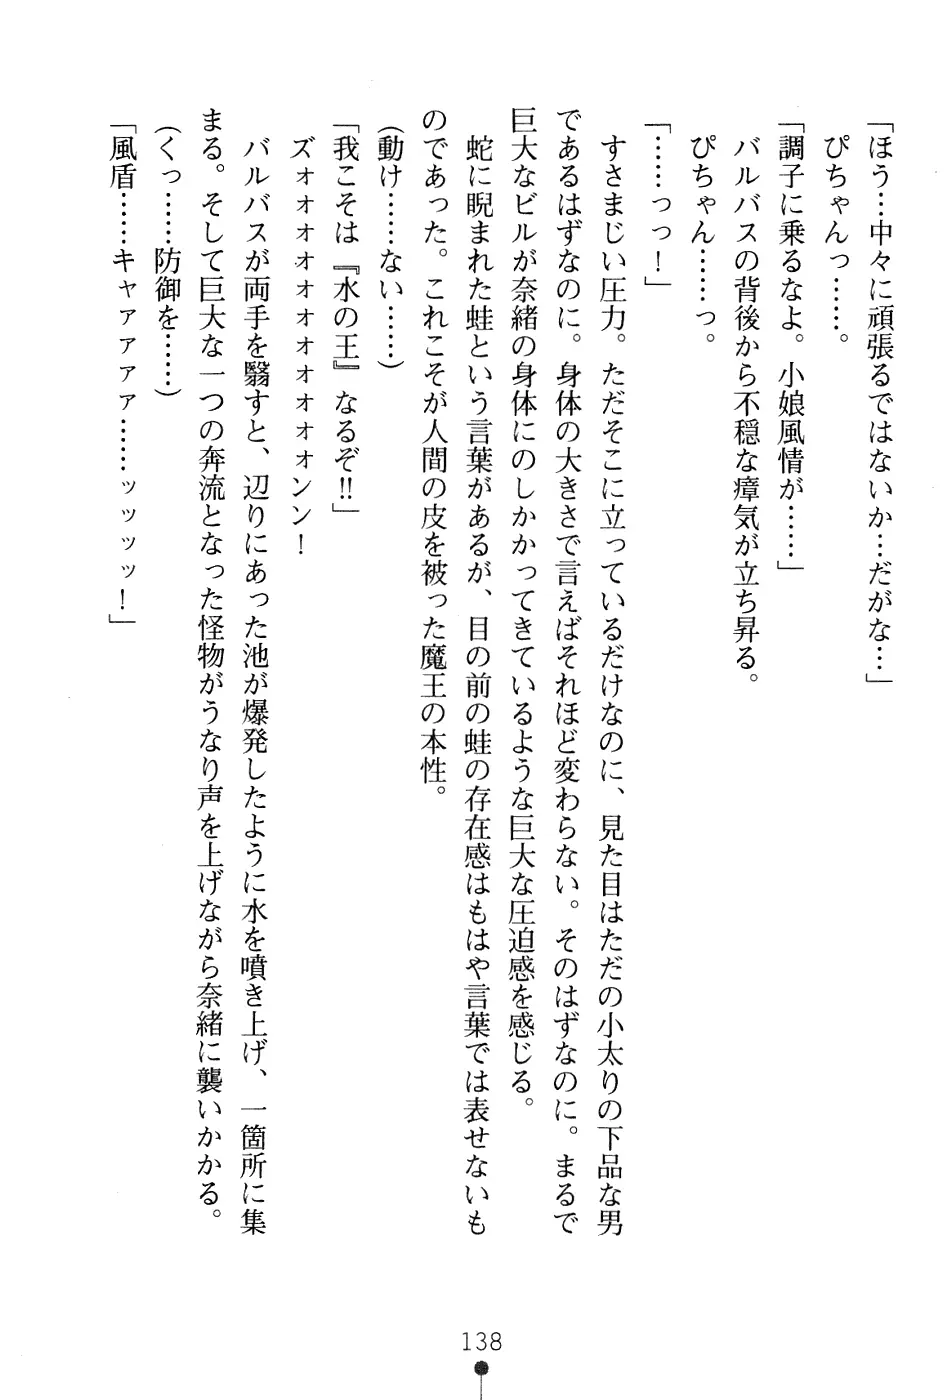 「ほう…中々に頑張るではないか…だがな…」
ぴちゃんっ……。
「調子に乗るなよ。小娘風情が……」
バルバスの背後から不穏な瘴気が立ち昇る。
ぴちゃん……っ。
「……っっ！」
すさまじい圧力。ただそこに立っているだけなのに、見た目はただの小太りの下品な男
であるはずなのに。身体の大きさで言えばそれほど変わらない。そのはずなのに。まるで
巨大なビルが奈緒の身体にのしかかってきているような巨大な圧迫感を感じる。
蛇に睨まれた蛙という言葉があるが、目の前の蛙の存在感はもはや言葉では表せないも
のであった。これこそが人間の皮を被った魔王の本性。
（動け……ない……）
「我こそは『水の王』なるぞ!!」
ズォォォォォォォォンン！
バルバスが両手を翳すと、辺りにあった池が爆発したように水を噴き上げ、一箇所に集
まる。そして巨大な一つの奔流となった怪物がうなり声を上げながら奈緒に襲いかかる。
（くっ……防御を……）
「風盾……キャァァァァ……ッッッッ！」
138